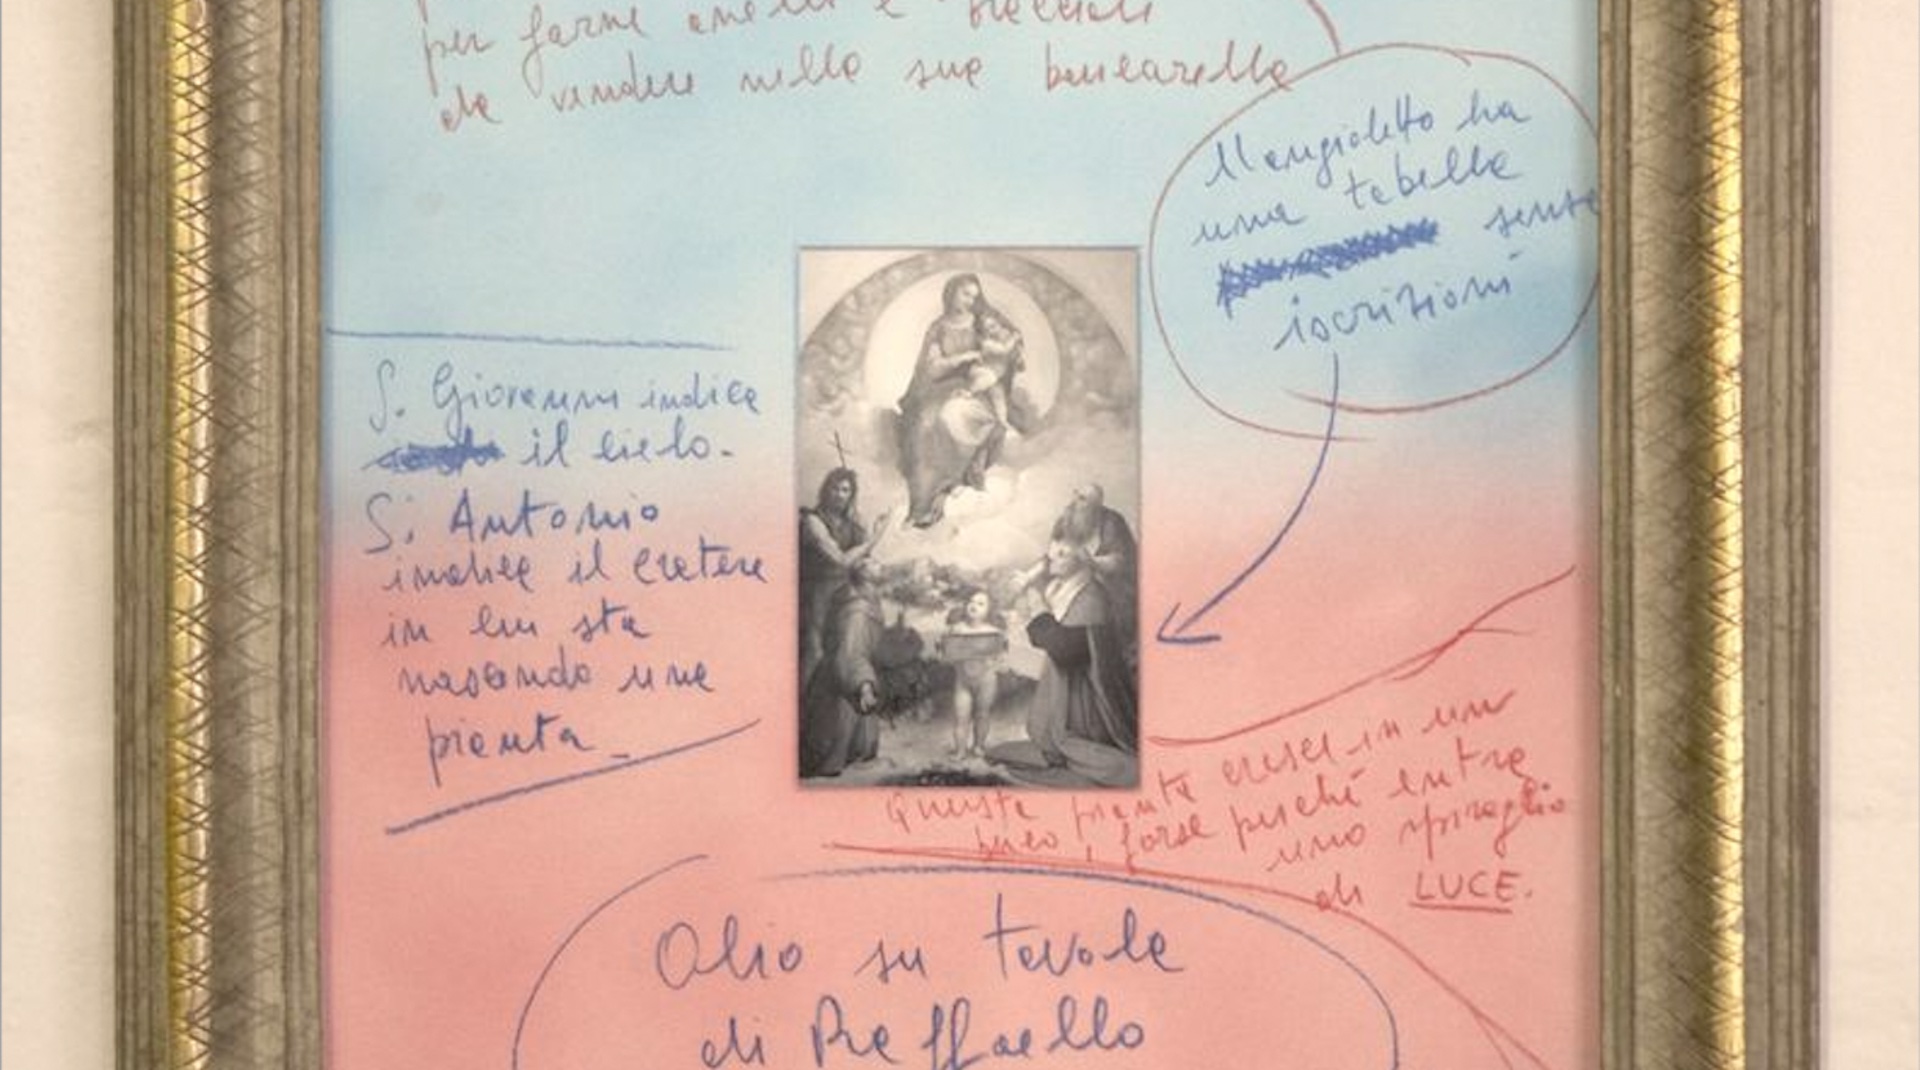 per farne anelli e bracciali
da vendere nella sua bancarella
L'angioletto ha
una tabella
senza
iscrizioni
S. Giovanni indica
il cielo.
S. Antonio
indica il cratere
in cui sta
nascendo una
pianta
Questa pianta cresce in un
buco, forse perché entra
uno spiraglio
di LUCE.
Olio su tavola
di Raffaello